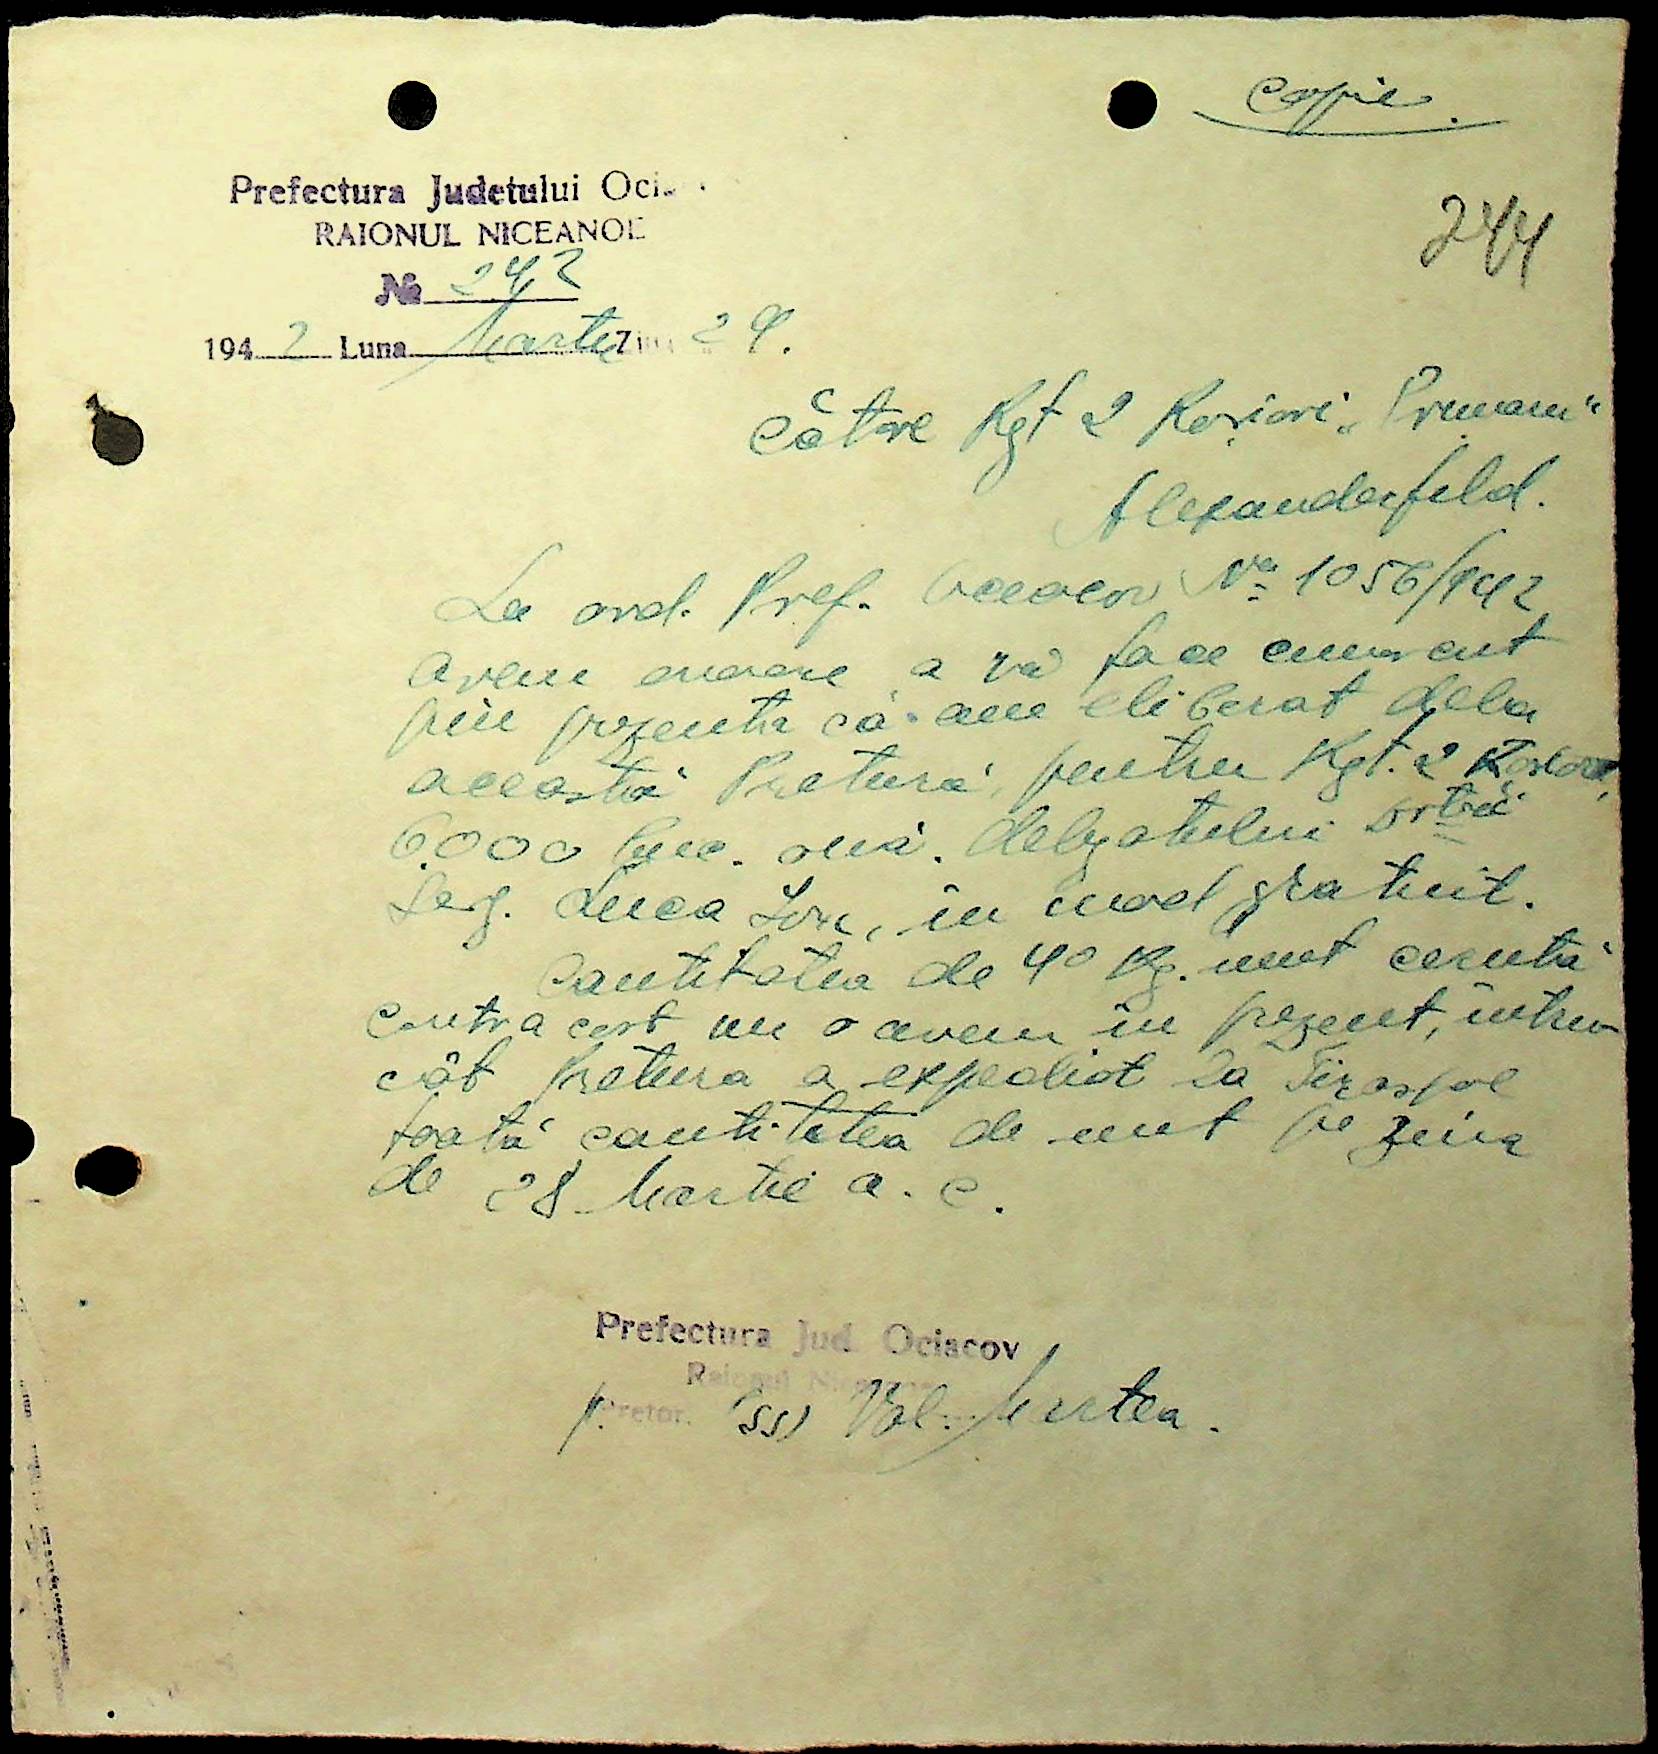 Copie.
Prefectura Judetului Oci
RAIONUL NICEANOE
244
№ 242
1942 Luna Martie Ziua 29.
Către Rgt 2 Roșiori
Alexanderfeld.
La ord. Pref. Oceacov № 1056/942
avem onoare a vă face cunoscut
prin prezenta că am eliberat dela
această Pretură, pentru Rgt. 2 Roșiori,
6.000 buc. ouă. delegatului
Serg. Luca Ion, în mod gratuit.
Cantitatea de 40 Kg. unt cerută
contra cost nu o avem în prezent, întru-
cât Pretura a expediat la Tiraspol
toată cantitatea de unt pe ziua
de 28 Martie a. c.
Prefectura Jud. Ociacov
Raionul
p. Pretor. (ss) Val. Martea.